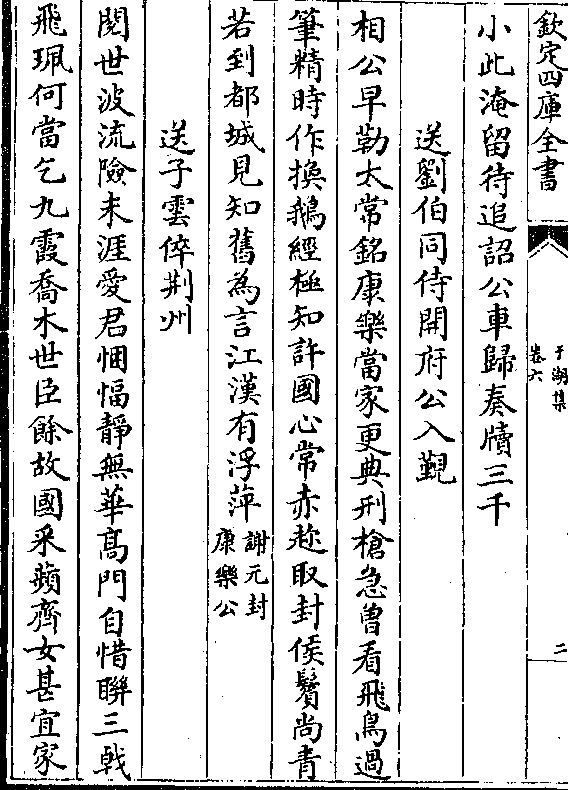 欽定四庫全書
于湖集
卷六
二
小此淹留待追詔公車歸奏牘三千
送劉伯同侍開府公入覲
相公早勒太常銘康樂當家更典刑槍急曾看飛鳥過
筆精時作換鵝經極知許國心常赤趂取封侯鬢尚青
若到都城見知舊為言江漢有浮萍謝元封
康樂公
送子雲倅荆州
閱世波流險未涯愛君悃愊靜無華髙門自惜聯三㦸
飛珮何當乞九霞喬木世臣餘故國采蘋齊女甚宜家